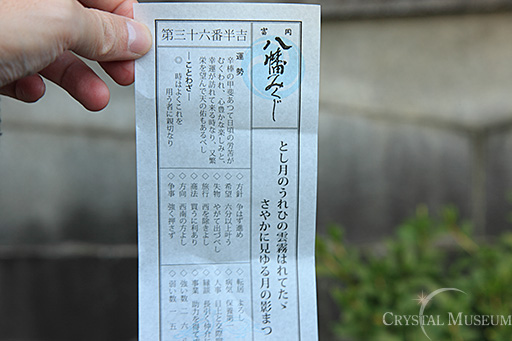 富岡
八幡みくじ
とし月のうれひの雲霧はれてたゞ
さやかに見ゆる月の影まつ
第三十六番半吉
運勢
辛棒の甲斐あつて日頃の労苦が
むくわれ、心豊かな楽しみと、
幸運が訪れて来る時なり、又繁
栄を望んで天の佑もあるべし
―ことわざ―
◎時はよくこれを
用う者に親切なり
◇方針 争はず進め
◇希望 六分以上叶う
◇失物 やがて出づべし
◇旅行 西を除きよし
◇商法 買うに利あり
◇方向 西南の方よし
◇争事 強く押さず
◇転居 よろし
◇病気 保養第一
◇人事 目上と
◇縁談 長引く仲介
◇事業 能力を得て
◇強い数 二 六
◇弱い数 一 五
CRYSTAL MUSEUM